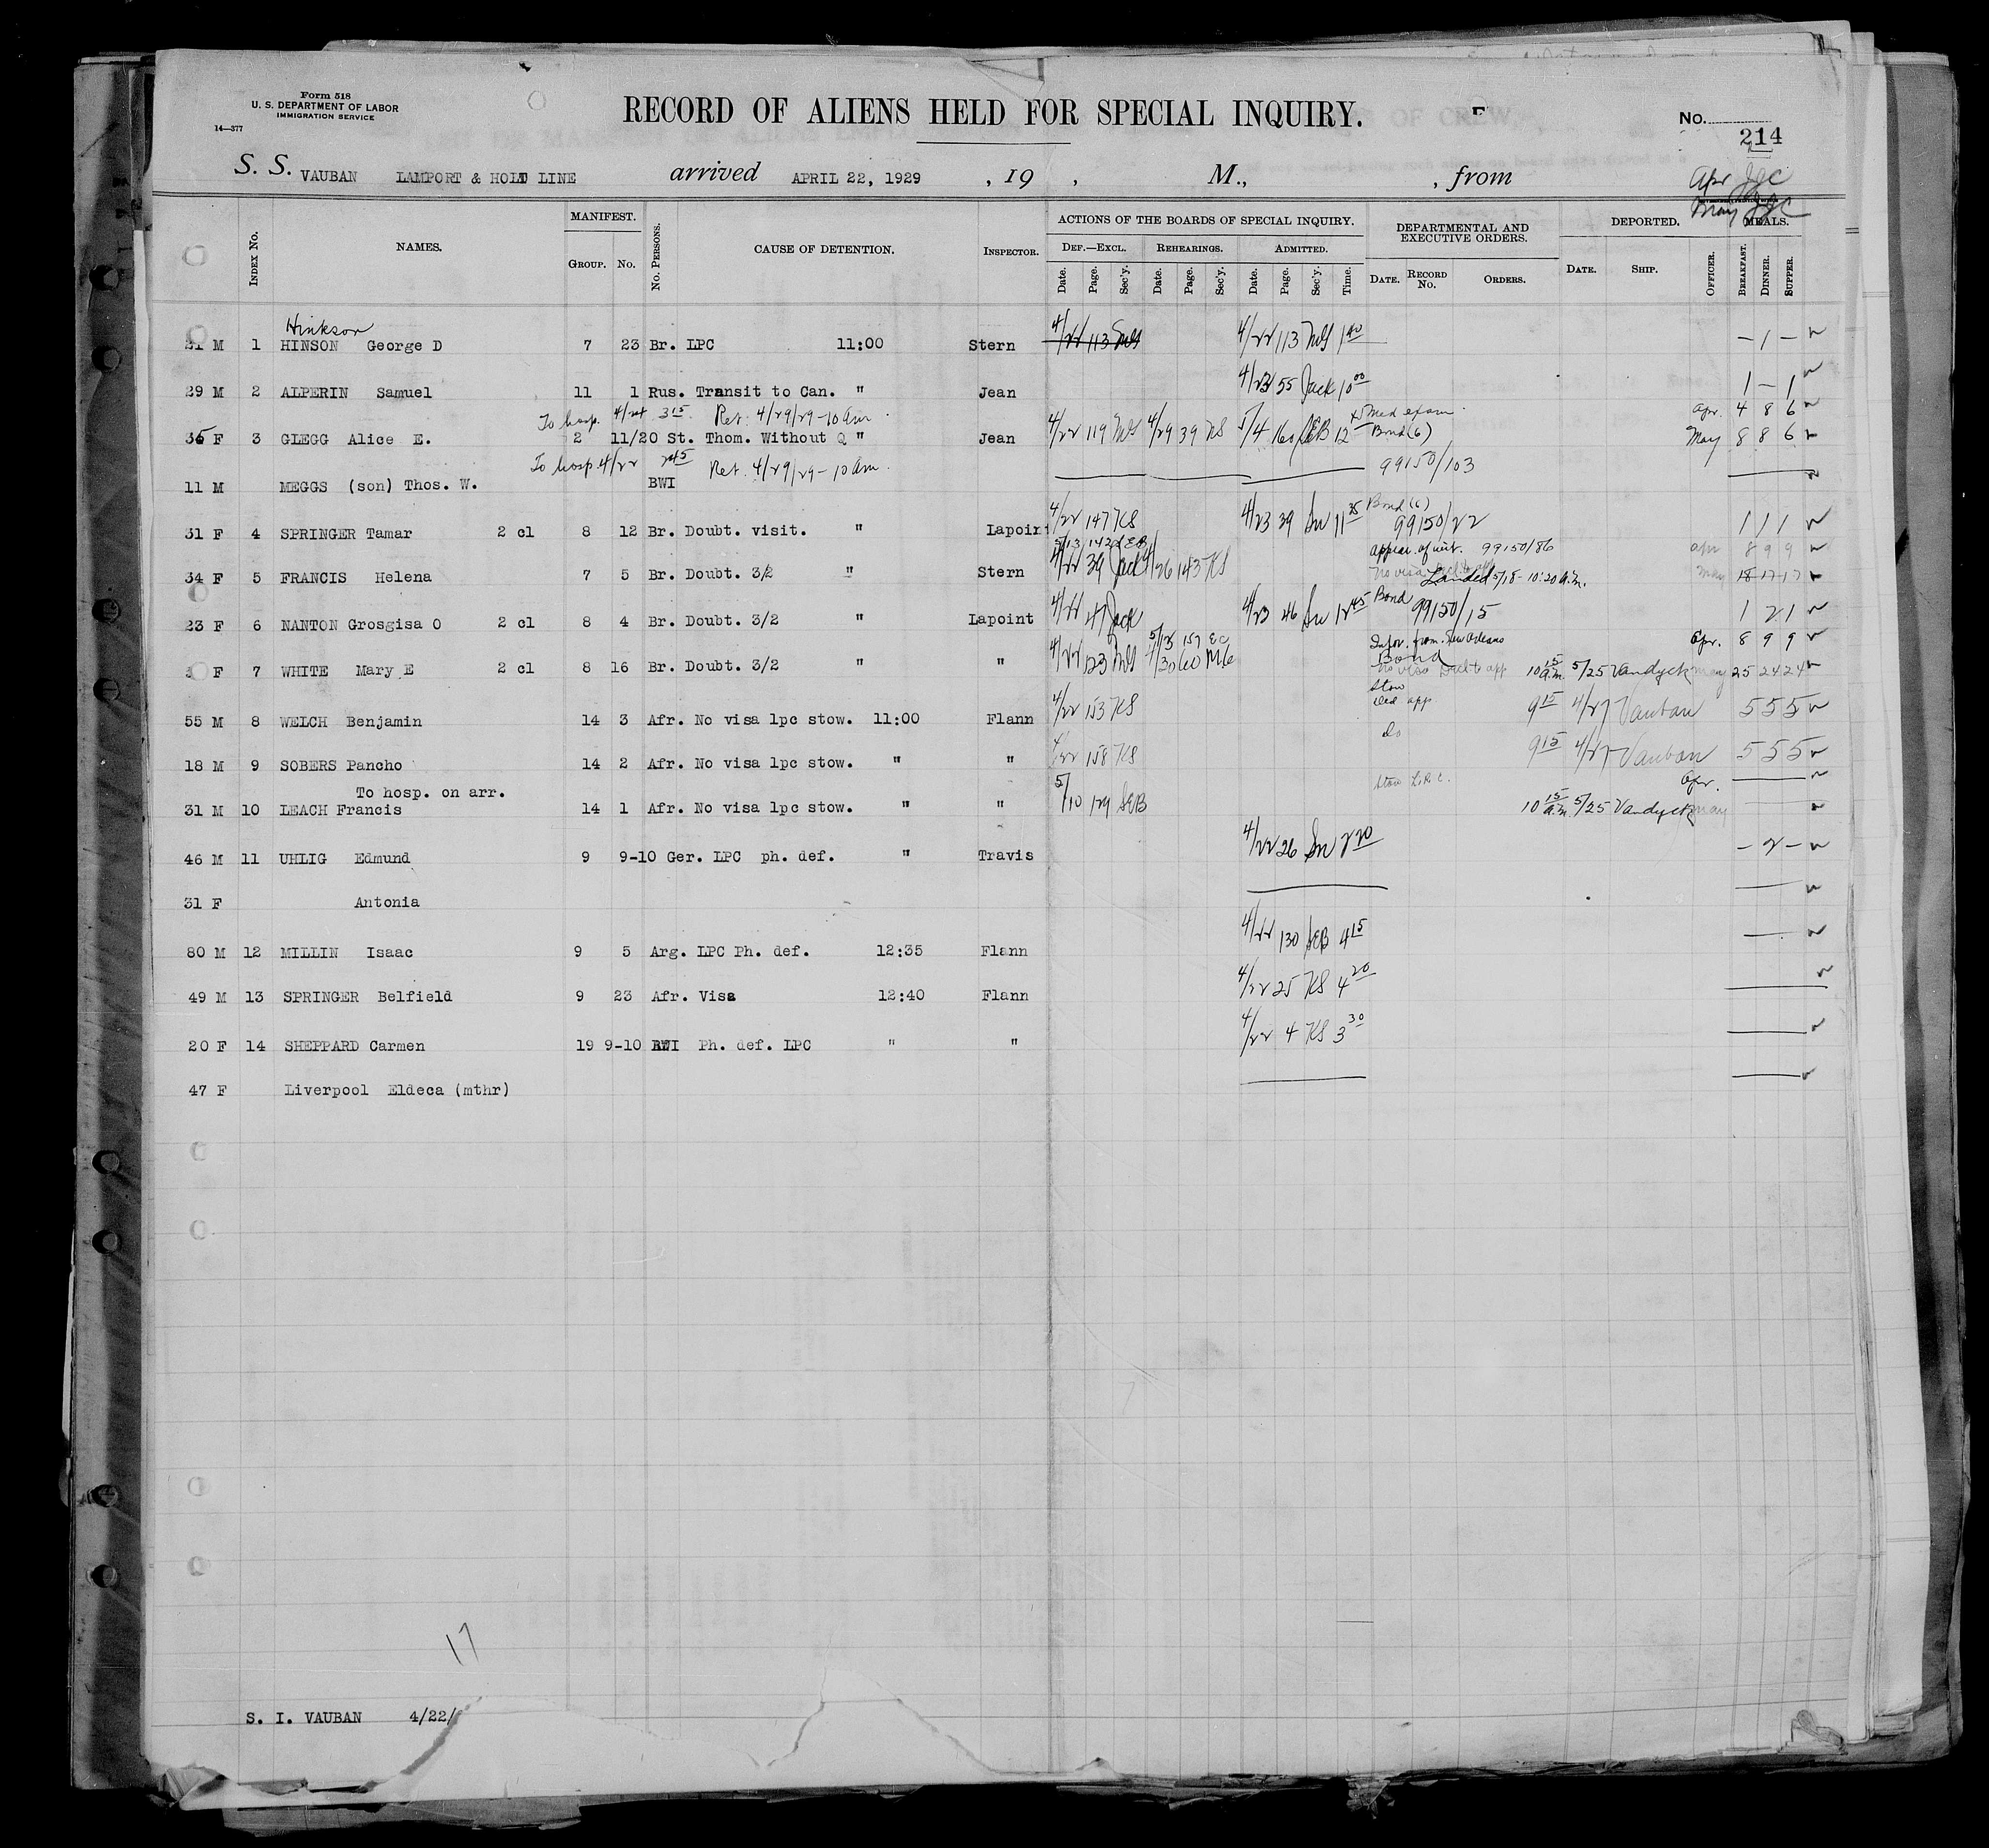 Form 518
U. S. DEPARTMENT OF LABOR
IMMIGRATION SERVICE
14—377
RECORD OF ALIENS HELD FOR SPECIAL INQUIRY.
No. 214
S. S. VAUBAN LAMPORT & HOLT LINE arrived APRIL 22, 1929 , 19 , M., , from
Apr JGC
May JGC
INDEX No. NAMES. MANIFEST. GROUP. No. No. PERSONS. CAUSE OF DETENTION. INSPECTOR. ACTIONS OF THE BOARDS OF SPECIAL INQUIRY. DEPARTMENTAL AND EXECUTIVE ORDERS. DEPORTED. MEALS.
DEF.—EXCL. REHEARINGS. ADMITTED.
Date. Page. Sec'y. Date. Page. Sec'y. Date. Page. Sec'y. Time. DATE. RECORD No. ORDERS. DATE. SHIP. OFFICER. BREAKFAST. DINNER. SUPPER.
Hinkson
21 M 1 HINSON George D 7 23 Br. LPC 11:00 Stern 4/22 113 MS 4/22 113 MS 1 40 — 1 —
29 M 2 ALPERIN Samuel 11 1 Rus. Transit to Can. " Jean 4/23 55 Jack 10 00 1 — 1
To hosp. 4/24 3 15 Ret. 4/29/29 - 10 Am. Med exam. Apr. 4 8 6
35 F 3 GLEGG Alice E. 2 11/20 St. Thom. Without Q " Jean 4/22 119 MS 4/29 39 KS 5/4 160 SEB 12 45 Bond (6) May 8 8 6
To hosp 4/22 2 45 Ret. 4/29/29 - 10 Am. 99150/103
11 M MEGGS (son) Thos. W. BWI
31 F 4 SPRINGER Tamar 2 cl 8 12 Br. Doubt. visit. " Lapoint 4/22 147 KS 4/23 39 Sn 11 35 Bond (6) 99150/22 1 1 1
5/13 142 SEB appear. of wit. 99150/86 apr 8 9 9
34 F 5 FRANCIS Helena 7 5 Br. Doubt. 3/2 " Stern 4/22 39 Jack 4/26 143 KS Landed 5/18 - 10:20 A.M. May 18 17 17
23 F 6 NANTON Grosgisa O 2 cl 8 4 Br. Doubt. 3/2 " Lapoint 4/22 47 Jack 4/23 46 Sn 12 45 Bond 99150/15 1 2 1
5/13 157 EC Infor. from New Orleans Apr. 8 9 9
Bond
F 7 WHITE Mary E 2 cl 8 16 Br. Doubt. 3/2 " " 4/22 123 MS 4/30 60 10 15 a.m. 5/25 Vandyck may 25 24 24
Stow
55 M 8 WELCH Benjamin 14 3 Afr. No visa lpc stow. 11:00 Flann 4/22 153 KS app 9 15 4/27 Vauban 5 5 5
18 M 9 SOBERS Pancho 14 2 Afr. No visa lpc stow. " " 4/22 158 KS do 9 15 4/27 Vauban 5 5 5
To hosp. on arr. Apr.
31 M 10 LEACH Francis 14 1 Afr. No visa lpc stow. " " 5/10 179 SEB Stow L.P.C. 10 15 a.m. 5/25 Vandyck may
46 M 11 UHLIG Edmund 9 9-10 Ger. LPC ph. def. " Travis 4/22 26 Sn 2 20 — 2 —
31 F Antonia
80 M 12 MILLIN Isaac 9 5 Arg. LPC Ph. def. 12:35 Flann 4/22 130 SEB 4 15
49 M 13 SPRINGER Belfield 9 23 Afr. Visa 12:40 Flann 4/22 25 KS 4 20
20 F 14 SHEPPARD Carmen 19 9-10 BWI Ph. def. LPC " " 4/22 4 KS 3 30
47 F Liverpool Eldeca (mthr)
17
S. I. VAUBAN 4/22/